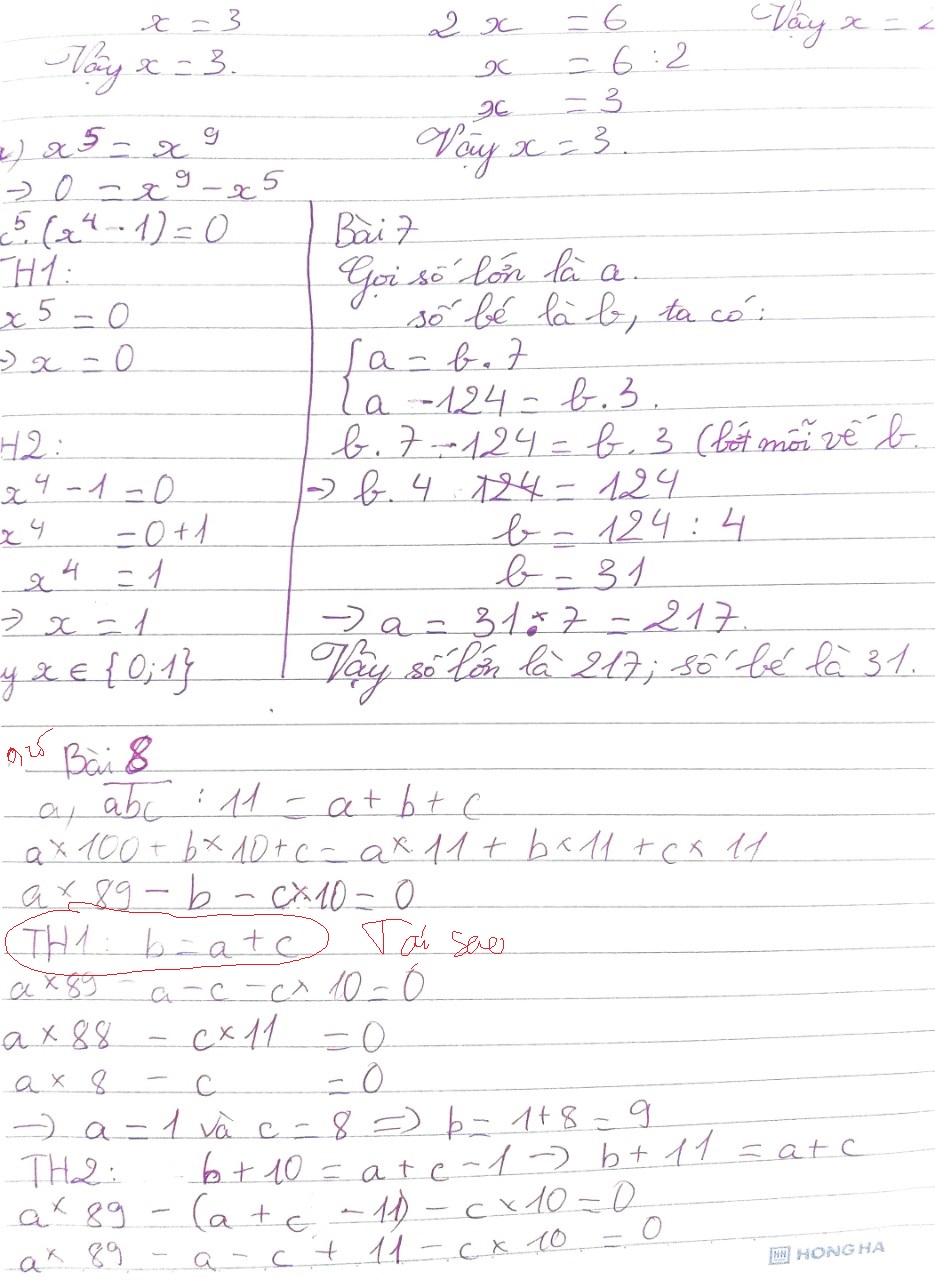 x = 3
Vậy x = 3.
2 x = 6
x = 6 : 2
x = 3
Vậy x = 3.
Vậy x =
) x⁵ = x⁹
→ 0 = x⁹ - x⁵
⁵.(x⁴ - 1) = 0
TH1:
x⁵ = 0
→ x = 0
H2:
x⁴ - 1 = 0
x⁴ = 0 + 1
x⁴ = 1
→ x = 1
y x ∈ {0;1}
Bài 7
Gọi số lớn là a.
số bé là b, ta có:
{ a = b.7
a - 124 = b.3.
b.7 - 124 = b.3 (bớt mỗi vế b.
→ b.4 124 = 124
b = 124 : 4
b = 31
→ a = 31 . 7 = 217.
Vậy số lớn là 217; số bé là 31.
Bài 8
a, abc : 11 = a + b + c
a × 100 + b × 10 + c = a × 11 + b × 11 + c × 11
a × 89 - b - c × 10 = 0
TH1: b = a + c Tại sao
a × 89 - a - c - c × 10 = 0
a × 88 - c × 11 = 0
a × 8 - c = 0
→ a = 1 và c = 8 => b = 1 + 8 = 9
TH2: b + 10 = a + c - 1 → b + 11 = a + c
a × 89 - (a + c - 11) - c × 10 = 0
a × 89 - a - c + 11 - c × 10 = 0
HONG HA